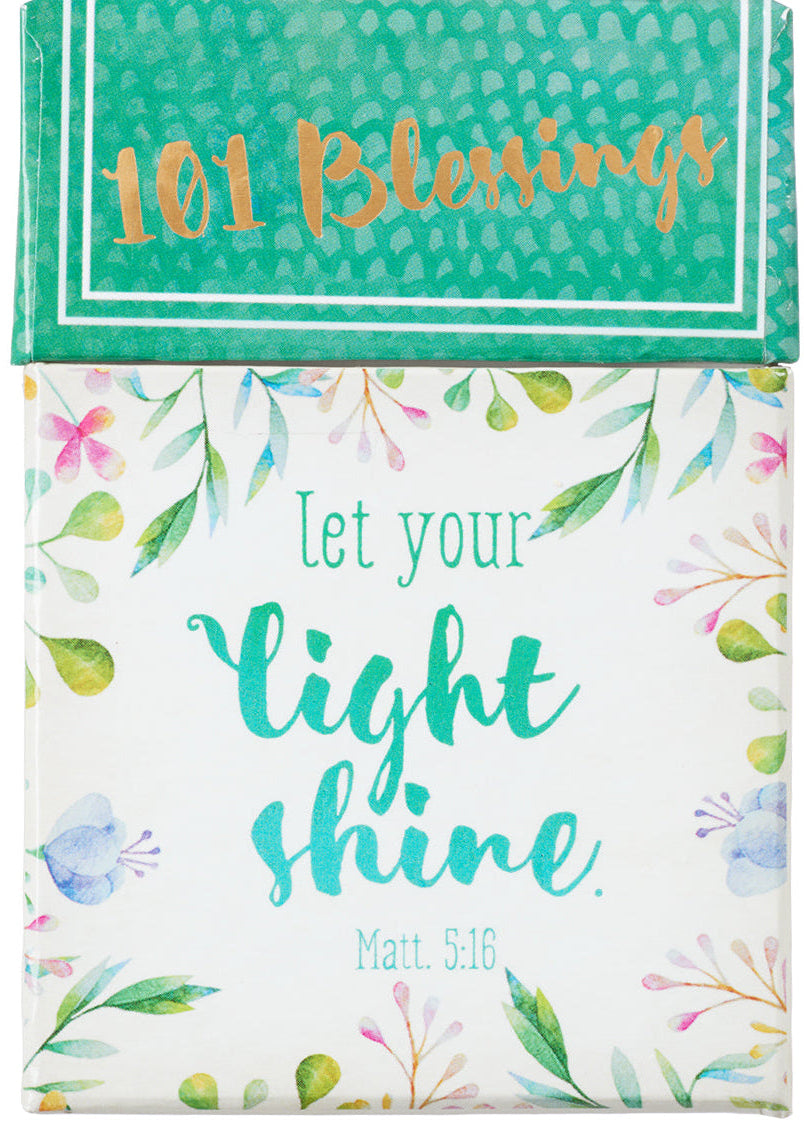 101 Blessings
let your
light
shine.
Matt. 5:16